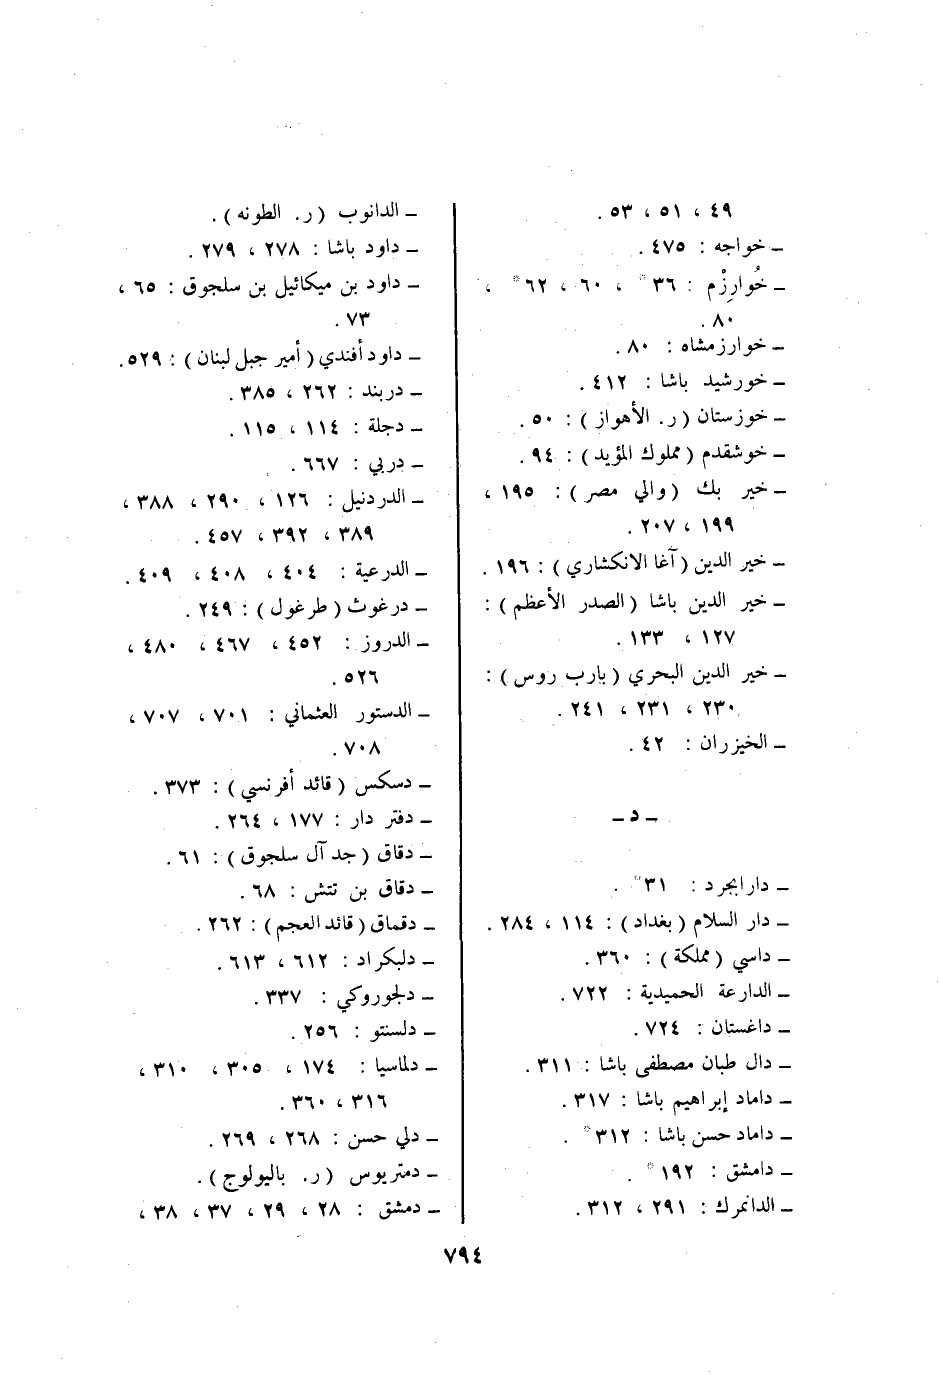 ٤٩ ، ٥١ ، ٥٣ .
ـ خواجه : ٤٧٥ .
ـ خُوارِزْم : ٣٦* ، ٦٠ ، ٦٢* ،
٨٠ .
ـ خوارزمشاه : ٨٠ .
ـ خورشيد باشا : ٤١٢ .
ـ خوزستان (ر. الأهواز) : ٥٠ .
ـ خوشقدم (مملوك المؤيد) : ٩٤ .
ـ خير بك (والي مصر) : ١٩٥ ،
١٩٩ ، ٢٠٧ .
ـ خير الدين (آغا الانكشاري) : ١٩٦ .
ـ خير الدين باشا (الصدر الأعظم) :
١٢٧ ، ١٣٣ .
ـ خير الدين البحري (بارب روس) :
٢٣٠ ، ٢٣١ ، ٢٤١ .
ـ الخيزران : ٤٢ .
ـ د ـ
ـ دارابجرد : ٣١* .
ـ دار السلام (بغداد) : ١١٤ ، ٢٨٤ .
ـ داسي (مملكة) : ٣٦٠ .
ـ الدارعة الحميدية : ٧٢٢ .
ـ داغستان : ٧٢٤ .
ـ دال طبان مصطفى باشا : ٣١١ .
ـ داماد إبراهيم باشا : ٣١٧ .
ـ داماد حسن باشا : ٣١٢* .
ـ دامشق : ١٩٢* .
ـ الدانمرك : ٢٩١ ، ٣١٢ .
ـ الدانوب (ر. الطونه) .
ـ داود باشا : ٢٧٨ ، ٢٧٩ .
ـ داود بن ميكائيل بن سلجوق : ٦٥ ،
٧٣ .
ـ داود أفندي (أمير جبل لبنان) : ٥٢٩ .
ـ دربند : ٢٦٢ ، ٣٨٥ .
ـ دجلة : ١١٤ ، ١١٥ .
ـ دربي : ٦٦٧ .
ـ الدردنيل : ١٢٦ ، ٢٩٠ ، ٣٨٨ ،
٣٨٩ ، ٣٩٢ ، ٤٥٧ .
ـ الدرعية : ٤٠٤ ، ٤٠٨ ، ٤٠٩ .
ـ درغوث (طرغول) : ٢٤٩ .
ـ الدروز : ٤٥٢ ، ٤٦٧ ، ٤٨٠ ،
٥٢٦ .
ـ الدستور العثماني : ٧٠١ ، ٧٠٧ ،
٧٠٨ .
ـ دسكس (قائد أفرنسي) : ٣٧٣ .
ـ دفتر دار : ١٧٧ ، ٢٦٤ .
ـ دقاق (جد آل سلجوق) : ٦١ .
ـ دقاق بن تتش : ٦٨ .
ـ دقماق (قائد العجم) : ٢٦٢ .
ـ دلبكراد : ٦١٢ ، ٦١٣ .
ـ دلجوروكي : ٣٣٧ .
ـ دلسنتو : ٢٥٦ .
ـ دلماسيا : ١٧٤ ، ٣٠٥ ، ٣١٠ ،
٣١٦ ، ٣٦٠ .
ـ دلي حسن : ٢٦٨ ، ٢٦٩ .
ـ دمتريوس (ر. باليولوج) .
ـ دمشق : ٢٨ ، ٢٩ ، ٣٧ ، ٣٨ ،
٧٩٤